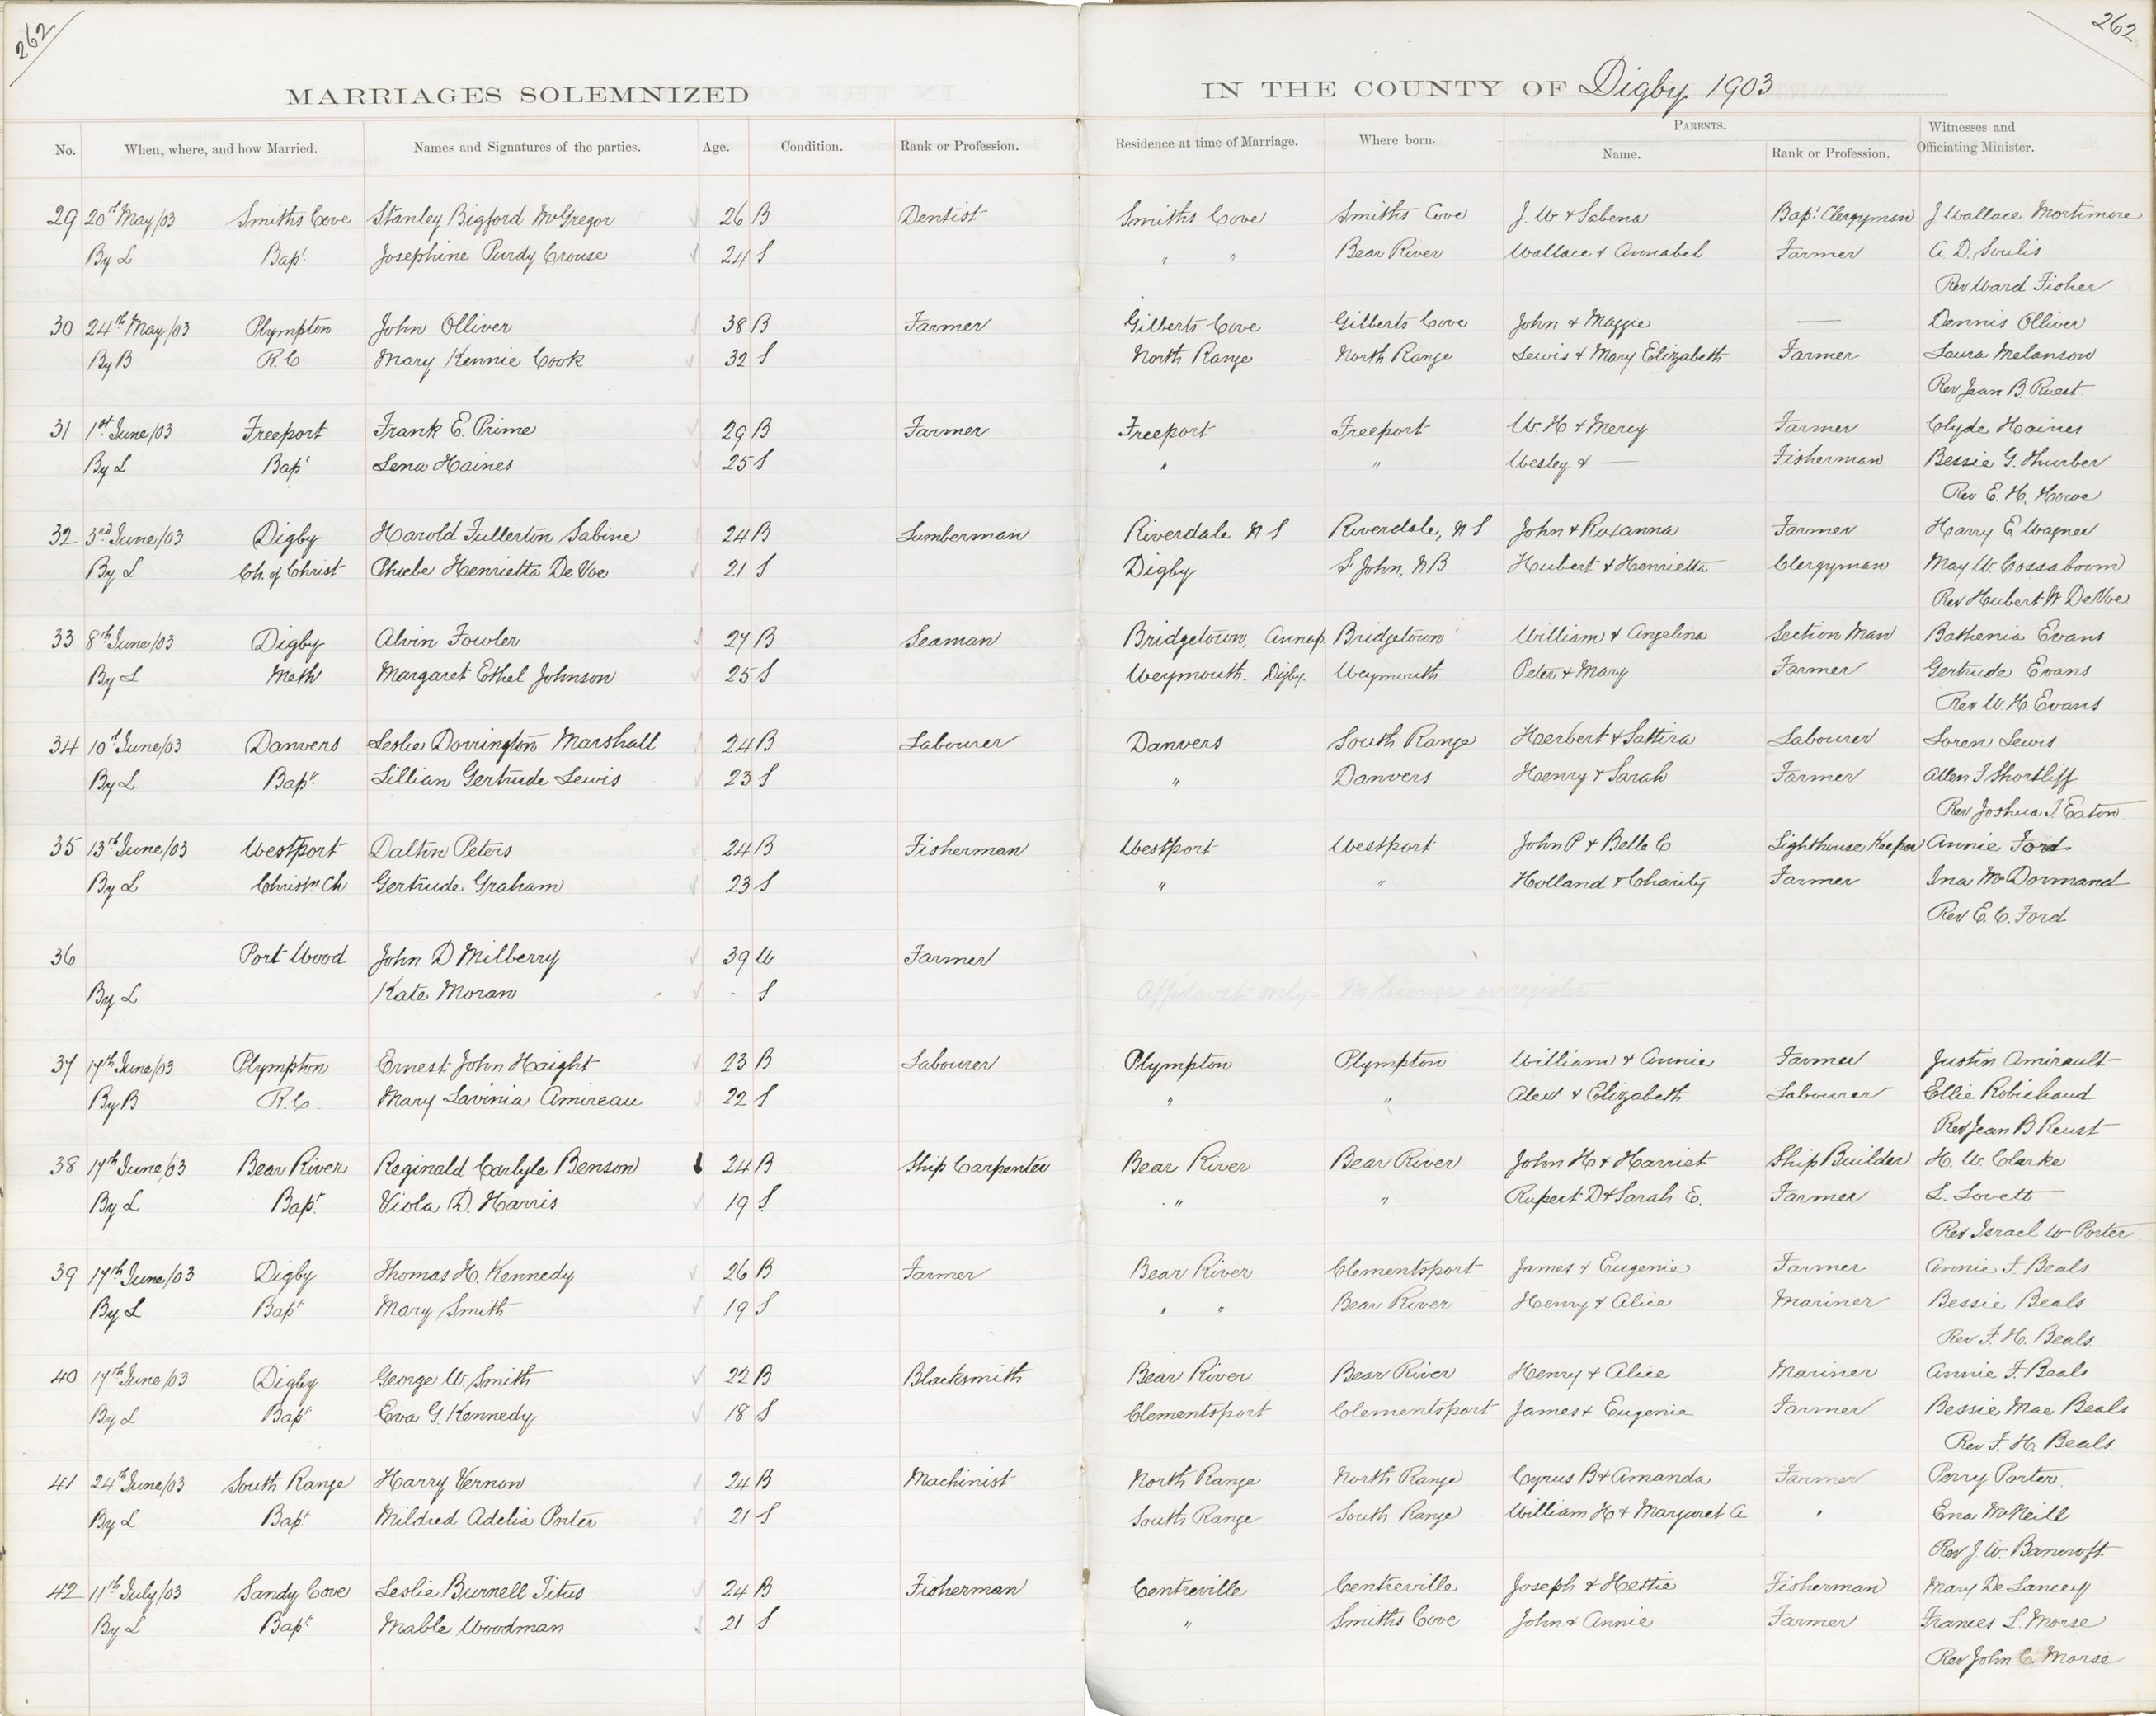 262
262
MARRIAGES SOLEMNIZED IN THE COUNTY OF Digby 1903
No. When, where, and how Married. Names and Signatures of the parties. Age. Condition. Rank or Profession. Residence at time of Marriage. Where born. PARENTS. Name. Rank or Profession. Witnesses and Officiating Minister.
29 20th May/03 Smiths Cove Stanley Bigford McGregor 26 B Dentist Smiths Cove Smiths Cove J. W & Sabena Bapt Clergyman J Wallace Mortimore
By L Bapt Josephine Purdy Crouse 24 S " " Bear River Wallace & Annabel Farmer A. D. Soulis
Rev Ward Fisher
30 24th May/03 Plympton John Olliver 38 B Farmer Gilberts Cove Gilberts Cove John & Maggie — Dennis Olliver
By B R.C Mary Kennie Cook 32 S North Range North Range Lewis & Mary Elizabeth Farmer Laura Melanson
Rev Jean B. Ruest
31 1st June/03 Freeport Frank E. Prime 29 B Farmer Freeport Freeport W. H & Mercy Farmer Clyde Haines
By L Bapt Lena Haines 25 S " " Wesley & — Fisherman Bessie G. Thurber
Rev E. H. Howe
32 3rd June/03 Digby Harold Fullerton Sabine 24 B Lumberman Riverdale N S Riverdale, N S John & Roxanna Farmer Harry E. Wagner
By L Ch. of Christ Phoebe Henrietta De Voe 21 S Digby St John, N B Hubert & Henrietta Clergyman May W. Cossaboom
Rev Hubert W DeVoe
33 8th June/03 Digby Alvin Fowler 27 B Seaman Bridgetown, Annap. Bridgetown William & Angelina Section Man Bathenia Evans
By L Meth Margaret Ethel Johnson 25 S Weymouth. Digby. Weymouth Peter & Mary Farmer Gertrude Evans
Rev W. H. Evans
34 10th June/03 Danvers Leslie Dorrington Marshall 24 B Labourer Danvers South Range Herbert & Sattira Labourer Loren Lewis
By L Bapt. Lillian Gertrude Lewis 23 S " Danvers Henry & Sarah Farmer Allen I Shortliff
Rev Joshua T. Eaton
35 13th June/03 Westport Dalton Peters 24 B Fisherman Westport Westport John P & Bella C Lighthouse Keeper Annie Ford
By L Christn Ch Gertrude Graham 23 S " " Holland & Charity Farmer Ina McDormand
Rev E. C. Ford
36 Port Wood John D Milberry 39 W Farmer
By L Kate Moran - S Affidavit only - No license or register
37 17th June/03 Plympton Ernest John Haight 23 B Labourer Plympton Plympton William & Annie Farmer Justin Amirault
By B R.C. Mary Lavinia Amireau 22 S " " Alex & Elizabeth Labourer Ellie Robichaud
Rev Jean B Reust
38 17th June/03 Bear River Reginald Carlyle Benson 24 B Ship Carpenter Bear River Bear River John H & Harriet Ship Builder H. W. Clarke
By L Bapt. Viola D. Harris 19 S " " Rupert D & Sarah E. Farmer L. Lovett
Rev Israel W Porter
39 17th June/03 Digby Thomas H. Kennedy 26 B Farmer Bear River Clementsport James & Eugenie Farmer Annie F. Beals
By L Bapt Mary Smith 19 S " " Bear River Henry & Alice Mariner Bessie Beals
Rev F. H. Beals
40 17th June/03 Digby George W. Smith 22 B Blacksmith Bear River Bear River Henry & Alice Mariner Annie F. Beals
By L Bapt Eva G. Kennedy 18 S Clementsport Clementsport James & Eugenie Farmer Bessie Mae Beals
Rev F. H. Beals.
41 24th June/03 South Range Harry Vernon 24 B Machinist North Range North Range Cyrus B & Amanda Farmer Perry Porter
By L Bapt Mildred Adelia Porter 21 S South Range South Range William H & Margaret A " Ena McNeill
Rev J. W. Bancroft
42 11th July/03 Sandy Cove Leslie Burnell Titus 24 B Fisherman Centreville Centreville Joseph & Hettie Fisherman Mary De Lancey
By L Bapt. Mable Woodman 21 S " Smiths Cove John & Annie Farmer Frances L. Morse
Rev John C. Morse